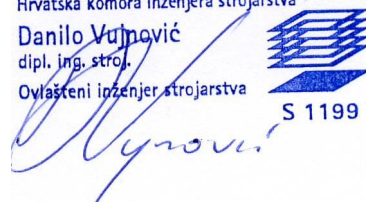 Hrvatska komora inženjera strojarstva
Danilo Vujnović
dipl. ing. stroj.
Ovlašteni inženjer strojarstva
S 1199
Vujnović